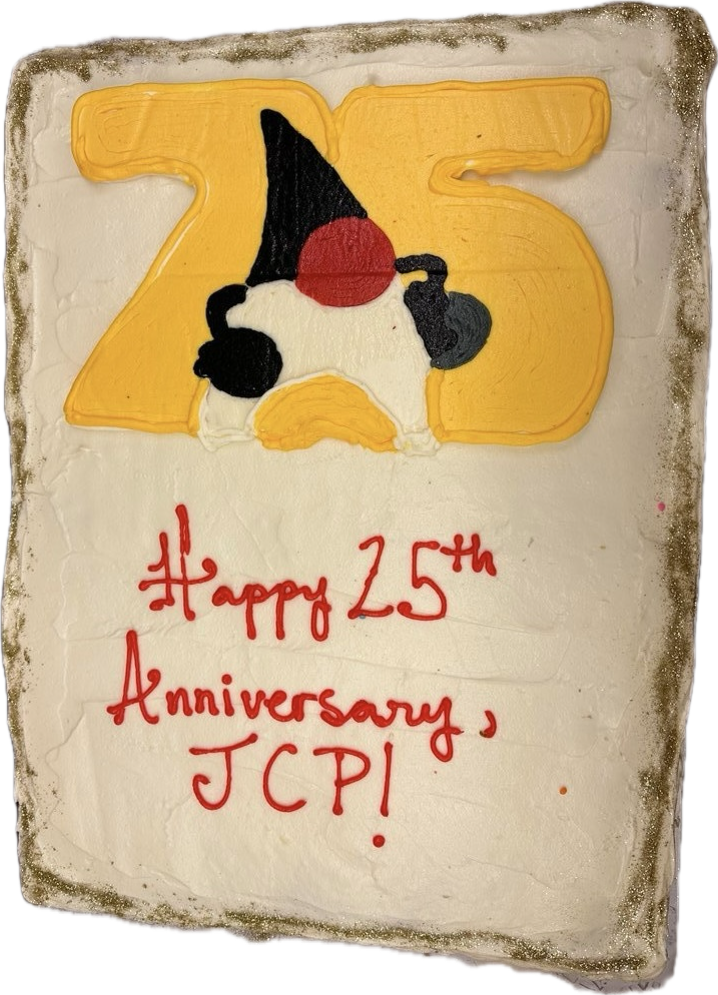 25
Happy 25th
Anniversary,
JCP!